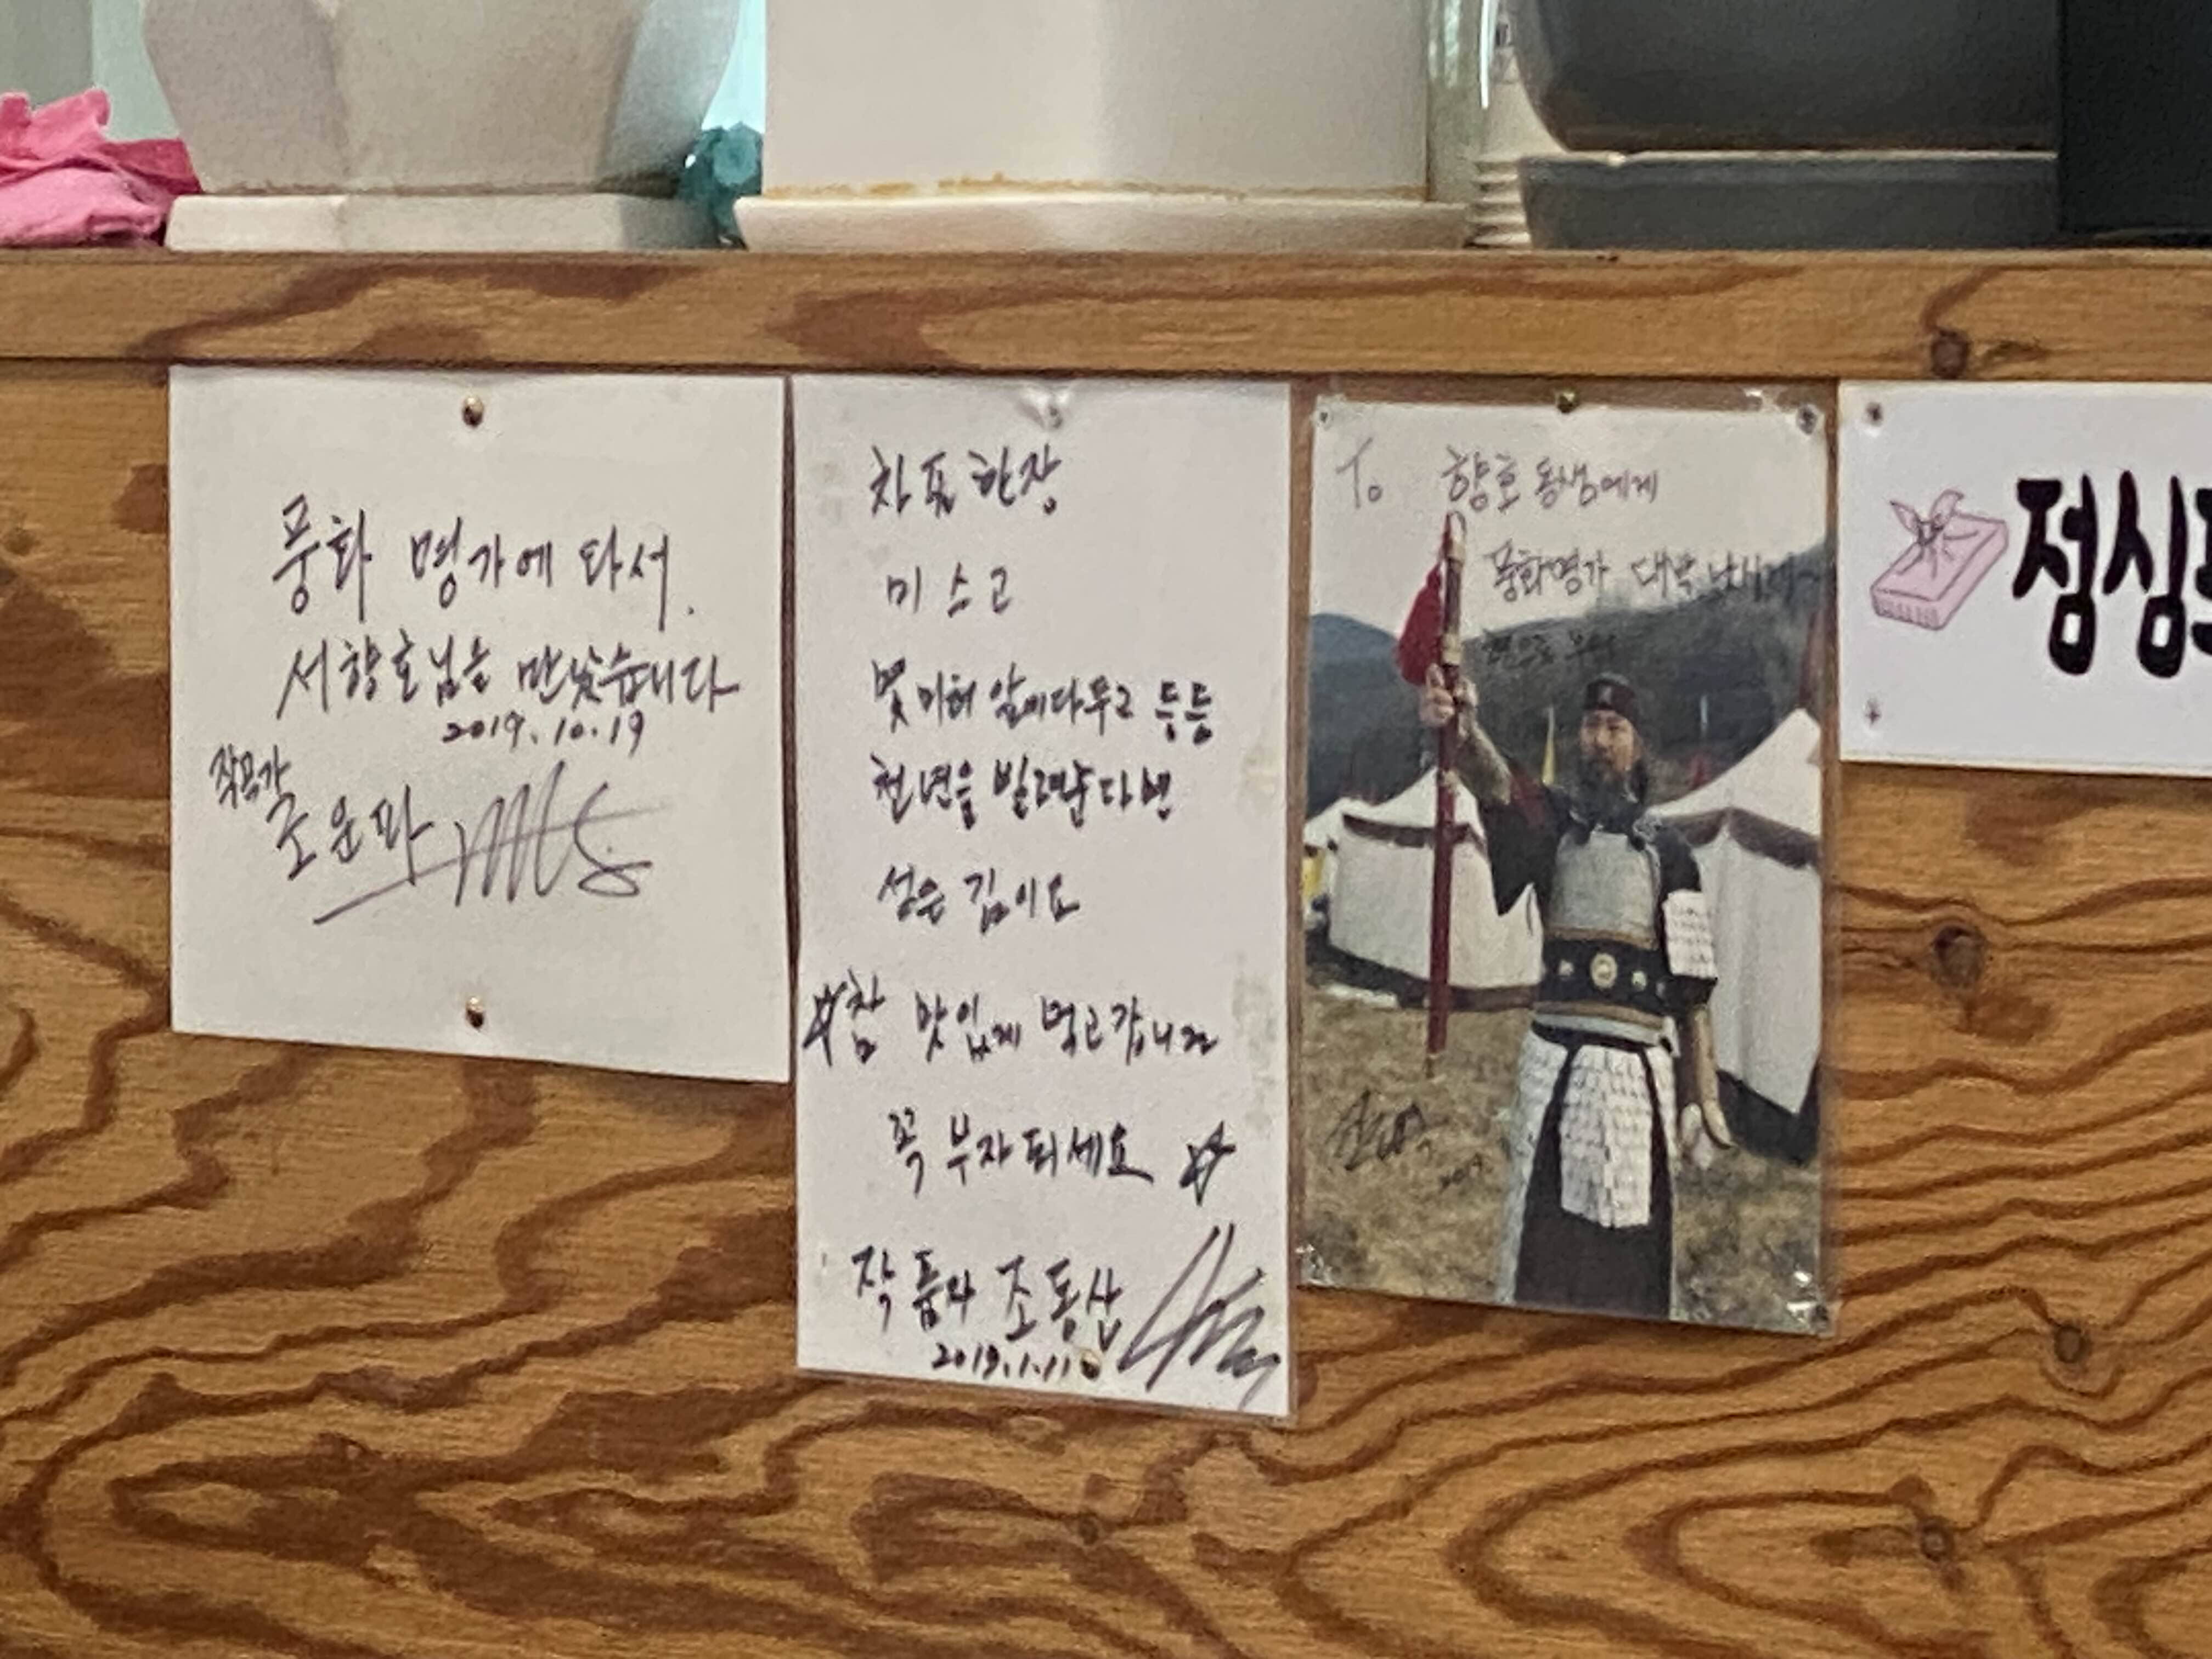 풍화 명가에 와서.
서향호님을 만났습니다
2019.10.19
작곡가
조운파
차표 한장
미스고
몇미터 앞에다두고 등등
천년을 빌려준다면
성은 김이요
☆참 맛있게 먹고갑니다
꼭 부자 되세요 ☆
작품자 조동산
2019.1.11
To 향호 동생에게
풍화명가 대박
2019
점심